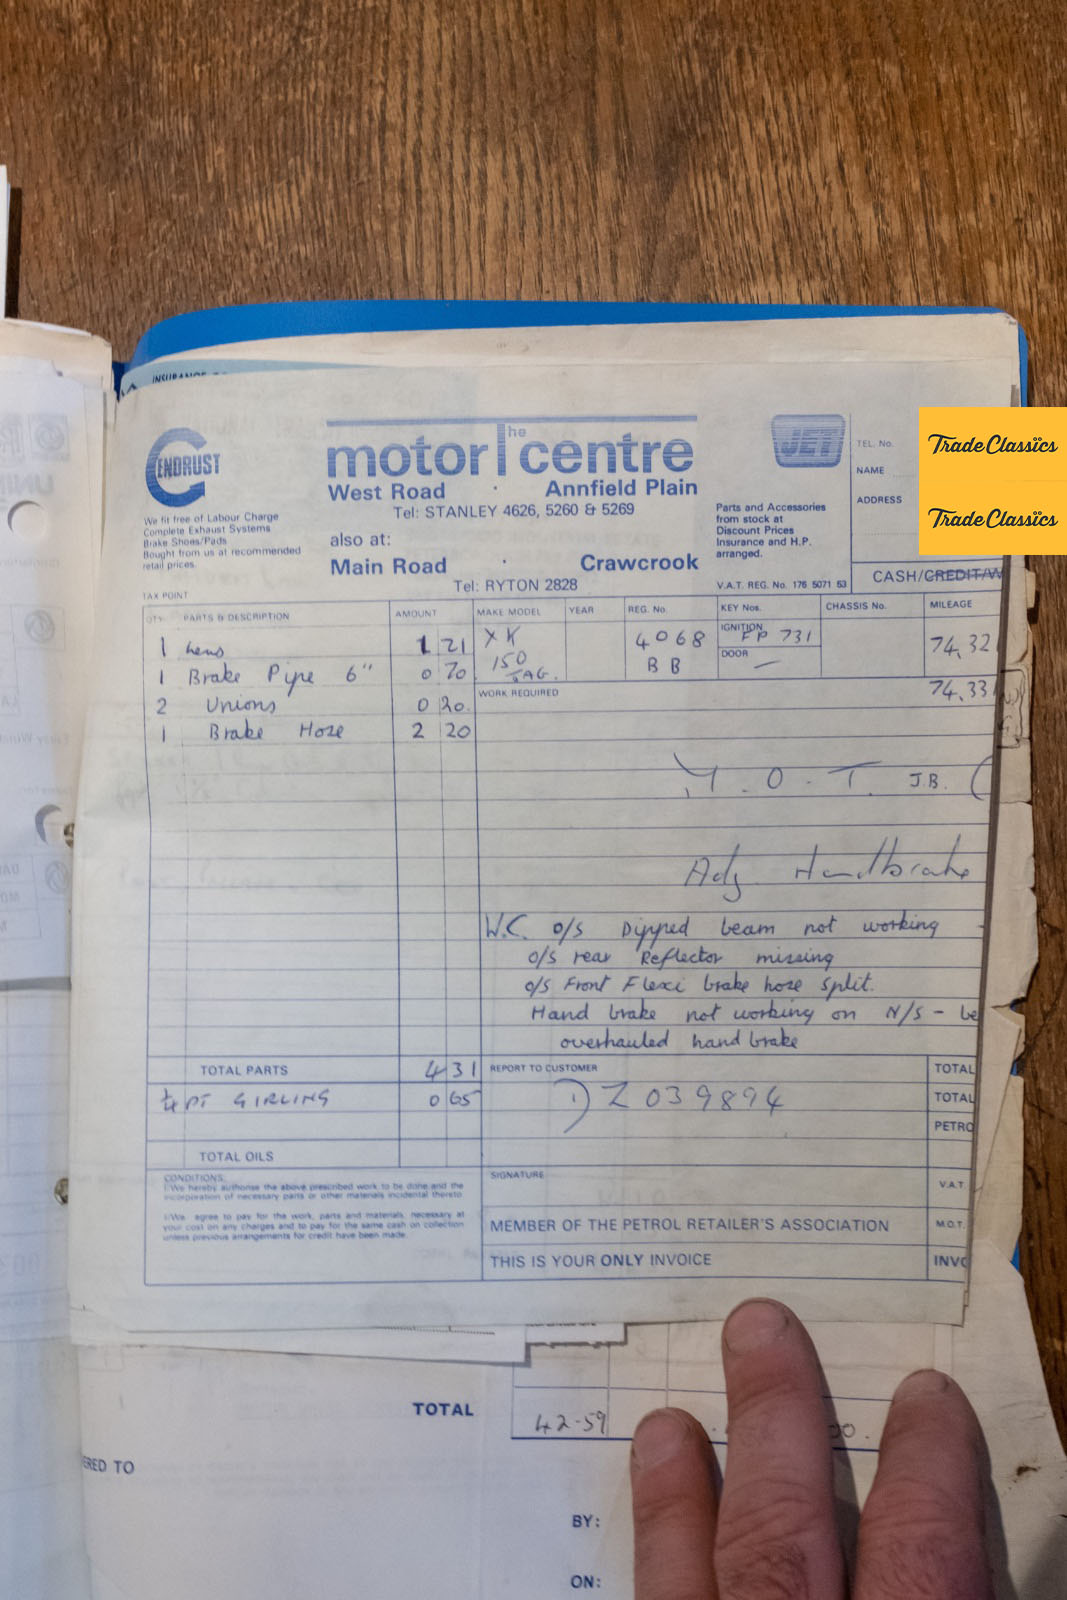 INSURANCE
CENDRUST
We fit free of Labour Charge
Complete Exhaust Systems
Brake Shoes/Pads
Bought from us at recommended
retail prices.
the
motor centre
West Road · Annfield Plain
Tel: STANLEY 4626, 5260 & 5269
also at:
Main Road · Crawcrook
Tel: RYTON 2828
JET
Parts and Accessories
from stock at
Discount Prices
Insurance and H.P.
arranged.
V.A.T. REG. No. 176 5071 53
TEL. No.
NAME
ADDRESS
Trade Classics
Trade Classics
CASH/CREDIT/W
TAX POINT
QTY. PARTS & DESCRIPTION AMOUNT MAKE MODEL YEAR REG. No. KEY Nos. CHASSIS No. MILEAGE
1 Lens 1 21
1 Brake Pipe 6" 0 70
2 Unions 0 20.
1 Brake Hose 2 20
XK
150
JAG.
4068
BB
IGNITION FP 731
DOOR —
74,32
74,33
WORK REQUIRED
M.O.T. J.B. (
Adj Handbrake
W.C. o/s Dipped beam not working
o/s rear Reflector missing
o/s Front Flexi brake hose split.
Hand brake not working on N/S - be
overhauled hand brake
TOTAL PARTS 4 31
¼ PT GIRLING 0 65
TOTAL OILS
REPORT TO CUSTOMER
DZ 039894
TOTAL
TOTAL
PETRO
CONDITIONS:
I/We hereby authorise the above prescribed work to be done and the
incorporation of necessary parts or other materials incidental thereto.
I/We agree to pay for the work, parts and materials, necessary at
your cost on any charges and to pay for the same cash on collection
unless previous arrangements for credit have been made.
SIGNATURE
V.A.T.
MEMBER OF THE PETROL RETAILER'S ASSOCIATION
M.O.T.
THIS IS YOUR ONLY INVOICE
INVO
TOTAL 42-59
00.
ERED TO
BY:
ON: